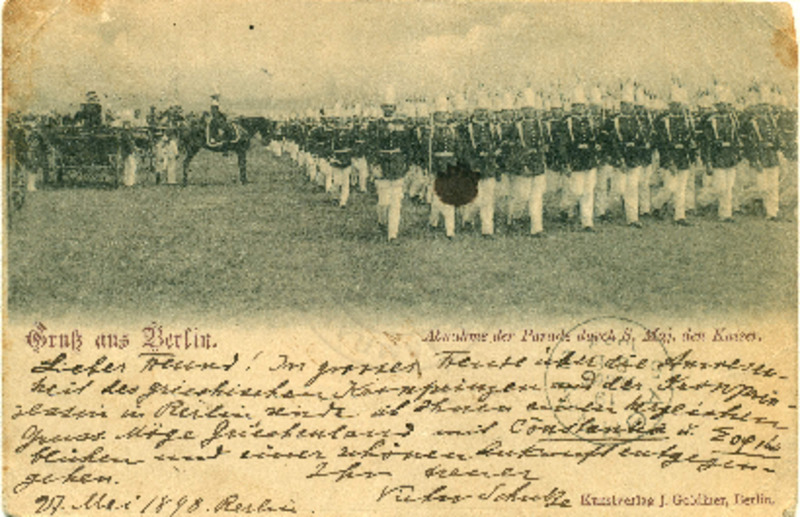 Gruß aus Berlin.
Abnahme der Parade durch S. Maj. den Kaiser.
Lieber Freund! In grosser Freude über die Anwesen-
heit des griechischen Kronprinzen und der Kronprin-
zessin in Berlin sende ich Ihnen einen herzlichen
Gruss. Möge Griechenland mit Constantin u. Σοφία
blühen und einer schönen Zukunft entgegen-
gehen. Ihr treuer
27. Mai 1898. Berlin. Victor Schultze
Kunstverlag J. Goldiner, Berlin.